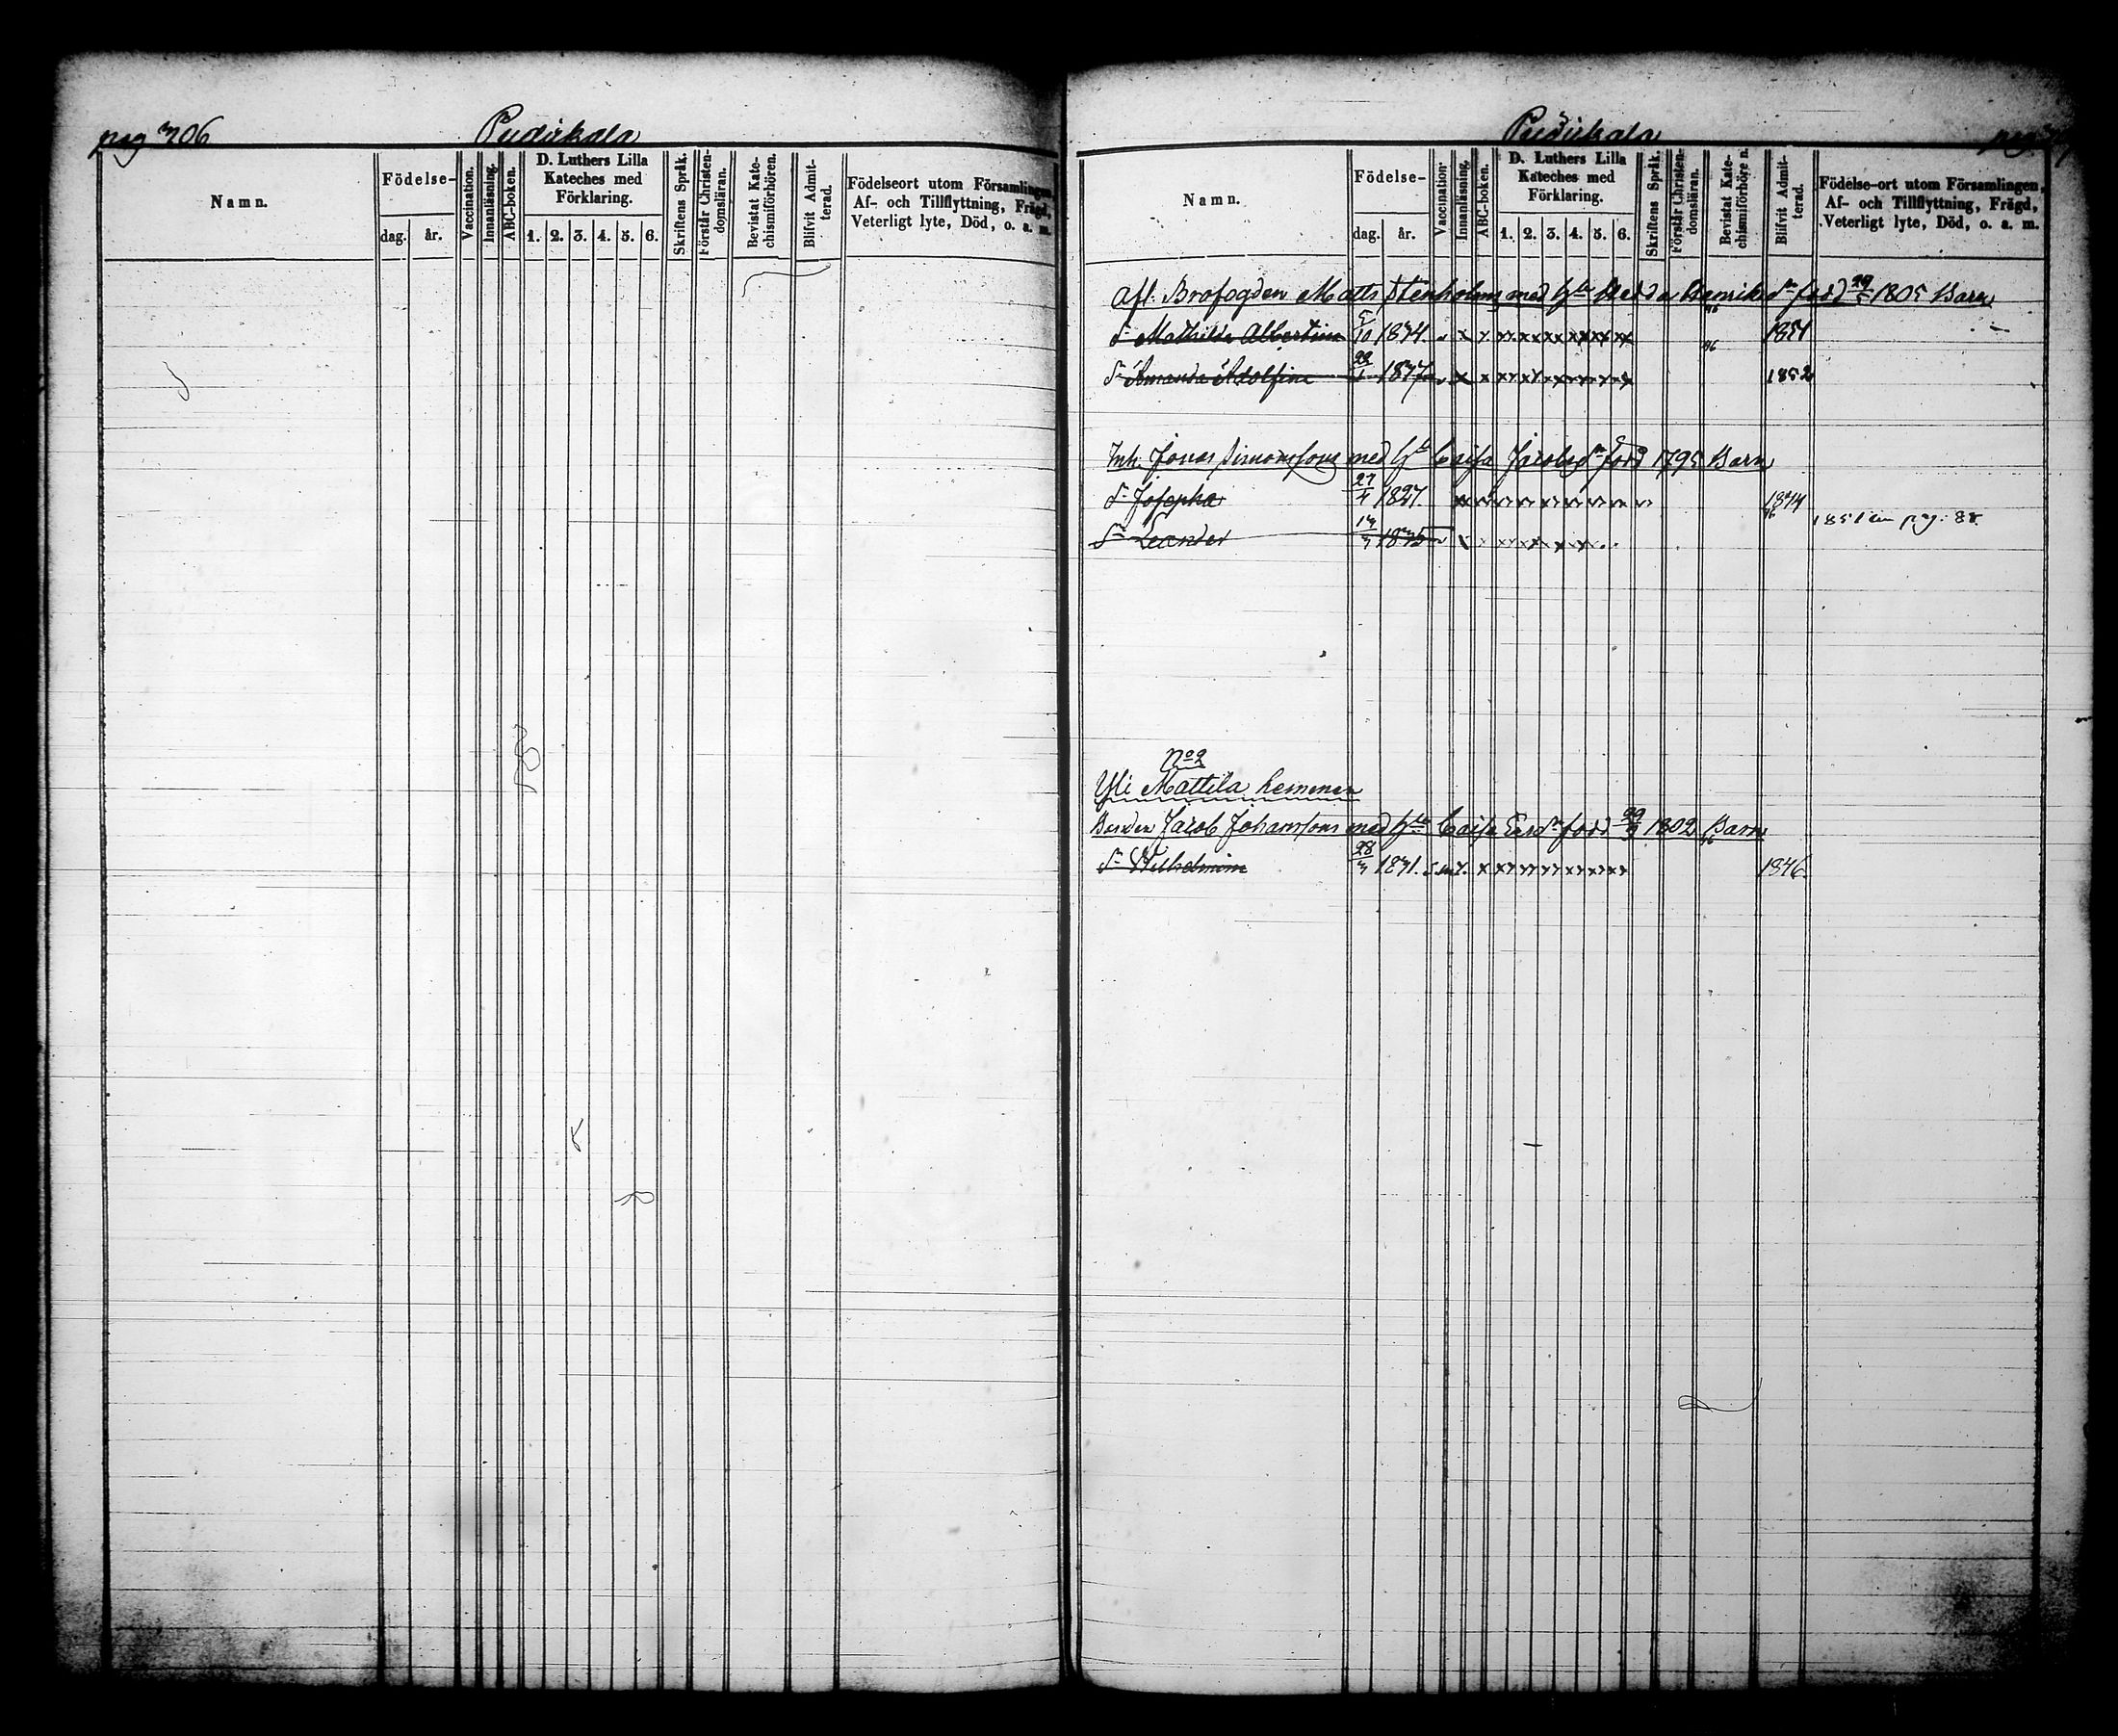 pag 306
Pudirkala
Namn.
Födelse-
dag.
år.
Vaccination.
Innanläsning.
ABC-boken.
D. Luthers Lilla
Kateches med
Förklaring.
1. 2. 3. 4. 5. 6.
Skriftens Språk.
Förstår Christen-
domsläran.
Bevistat Kate-
chismiförhören.
Blifvit Admit-
terad.
Födelseort utom Församlingen,
Af- och Tillflyttning, Frägd,
Veterligt lyte, Död, o. a. m.
Pudirkala
pag.
Namn.
Födelse-
dag.
år.
Vaccination.
Innanläsning.
ABC-boken.
D. Luthers Lilla
Kateches med
Förklaring.
1. 2. 3. 4. 5. 6.
Skriftens Språk.
Förstår Christen-
domsläran.
Bevistat Kate-
chismiförhören.
Blifvit Admit-
terad.
Födelse-ort utom Församlingen,
Af- och Tillflyttning, Frägd,
Veterligt lyte, Död, o. a. m.
Afl. Brofogden Matts Stenholms med Hu Hedda Henriksdr född 1805 Barn
Dr Mathilda Albertina 5/10 1834. 1851
Dr Amanda Adolfina 22/1 1837 1852
Inh. Jonas Simonssons med Hu Caisa Jacobsdr född 1795 Barn
Dr Josepha 27/4 1827. 1844
Sn Leander 13/3 1835 1851 pag: 88.
No 2
Yli Mattila hemman
Bonden Jacob Johanssons med Hu Caisa Ersdr född 1802 Barn
Dr Wilhelmina 28/3 1831. 1846.